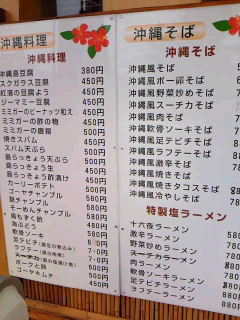 沖縄料理
沖縄料理
沖縄島豆腐 380円
スクガラス豆腐 450円
紅濱の豆腐よう 450円
ジーマミー豆腐 450円
ミミガーのピーナッツ和え 400円
ミミガーの酢の物 450円
ミミガーの燻製 500円
焼スパム 450円
スパム天ぷら 500円
島らっきょう天ぷら 500円
島らっきょう生 450円
島らっきょう酢漬け 450円
カーリーポテト 500円
ゴーヤチャンプル 580円
麩チャンプル 580円
そーめんチャンプル 580円
島もずく酢 400円
海ぶどう 480円
軟骨ソーキ 580円
足テビチ
ラフテー
ゴーヤキムチ 450円
沖縄そば
沖縄そば
沖縄風そば
沖縄風ポー卵そば
沖縄風野菜炒めそば
沖縄風スーチカそば
沖縄風肉そば
沖縄軟骨ソーキそば
沖縄足テビチそば
沖縄ラフテーそば
沖縄風激辛そば
沖縄風焼きそば
沖縄風焼きタコスそば
沖縄風冷やしそば
特製塩ラーメン
十六夜ラーメン
激辛ラーメン
野菜炒めラーメン
スーチカラーメン
肉ラーメン
軟骨ソーキラーメン
足テビチラーメン
ラフテーラーメン